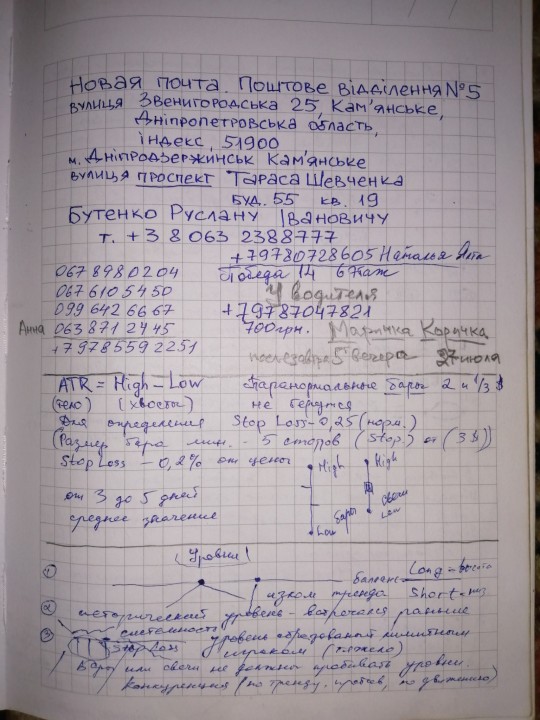 Новая почта. Поштове відділення №5
вулиця Звенигородська 25, Кам'янське,
Дніпропетровська область,
індекс, 51900
м. Дніпродзержинськ Кам'янське
вулиця проспект Тараса Шевченка
буд. 55 кв. 19
Бутенко Руслану Івановичу
т. +38 063 2388777
+79780728605 Наталья Ялта
Победа 14 6 этаж
067 8980204
067 6105450
099 6426667
Анна 063 871 2445
+79785592251
У водителя
+79787047821
700грн. Маричка Корячка
послезавтра 5 вечера 27 июля
ATR = High – Low Паранормальные бары 2 и 1/3 $
(тело) (хвосты) не берутся
Для определения Stop Loss – 0,25 (норм.)
(Размер бара мин. – 5 стопов (Stop.) от (3$))
Stop Loss – 0,2% от цены
High High
от 3 до 5 дней
среднее значение
Бары Свечи
Low Low
(Уровни)
1 баланс Long – высота
излом тренда Short – низ
2 исторический уровень – встречался раньше
3 уровень образованый лимитным
Stop Loss игроком (тяжело)
Бары или свечи не должны пробивать уровни.
Конкуренция (по тренду, против, по движению)